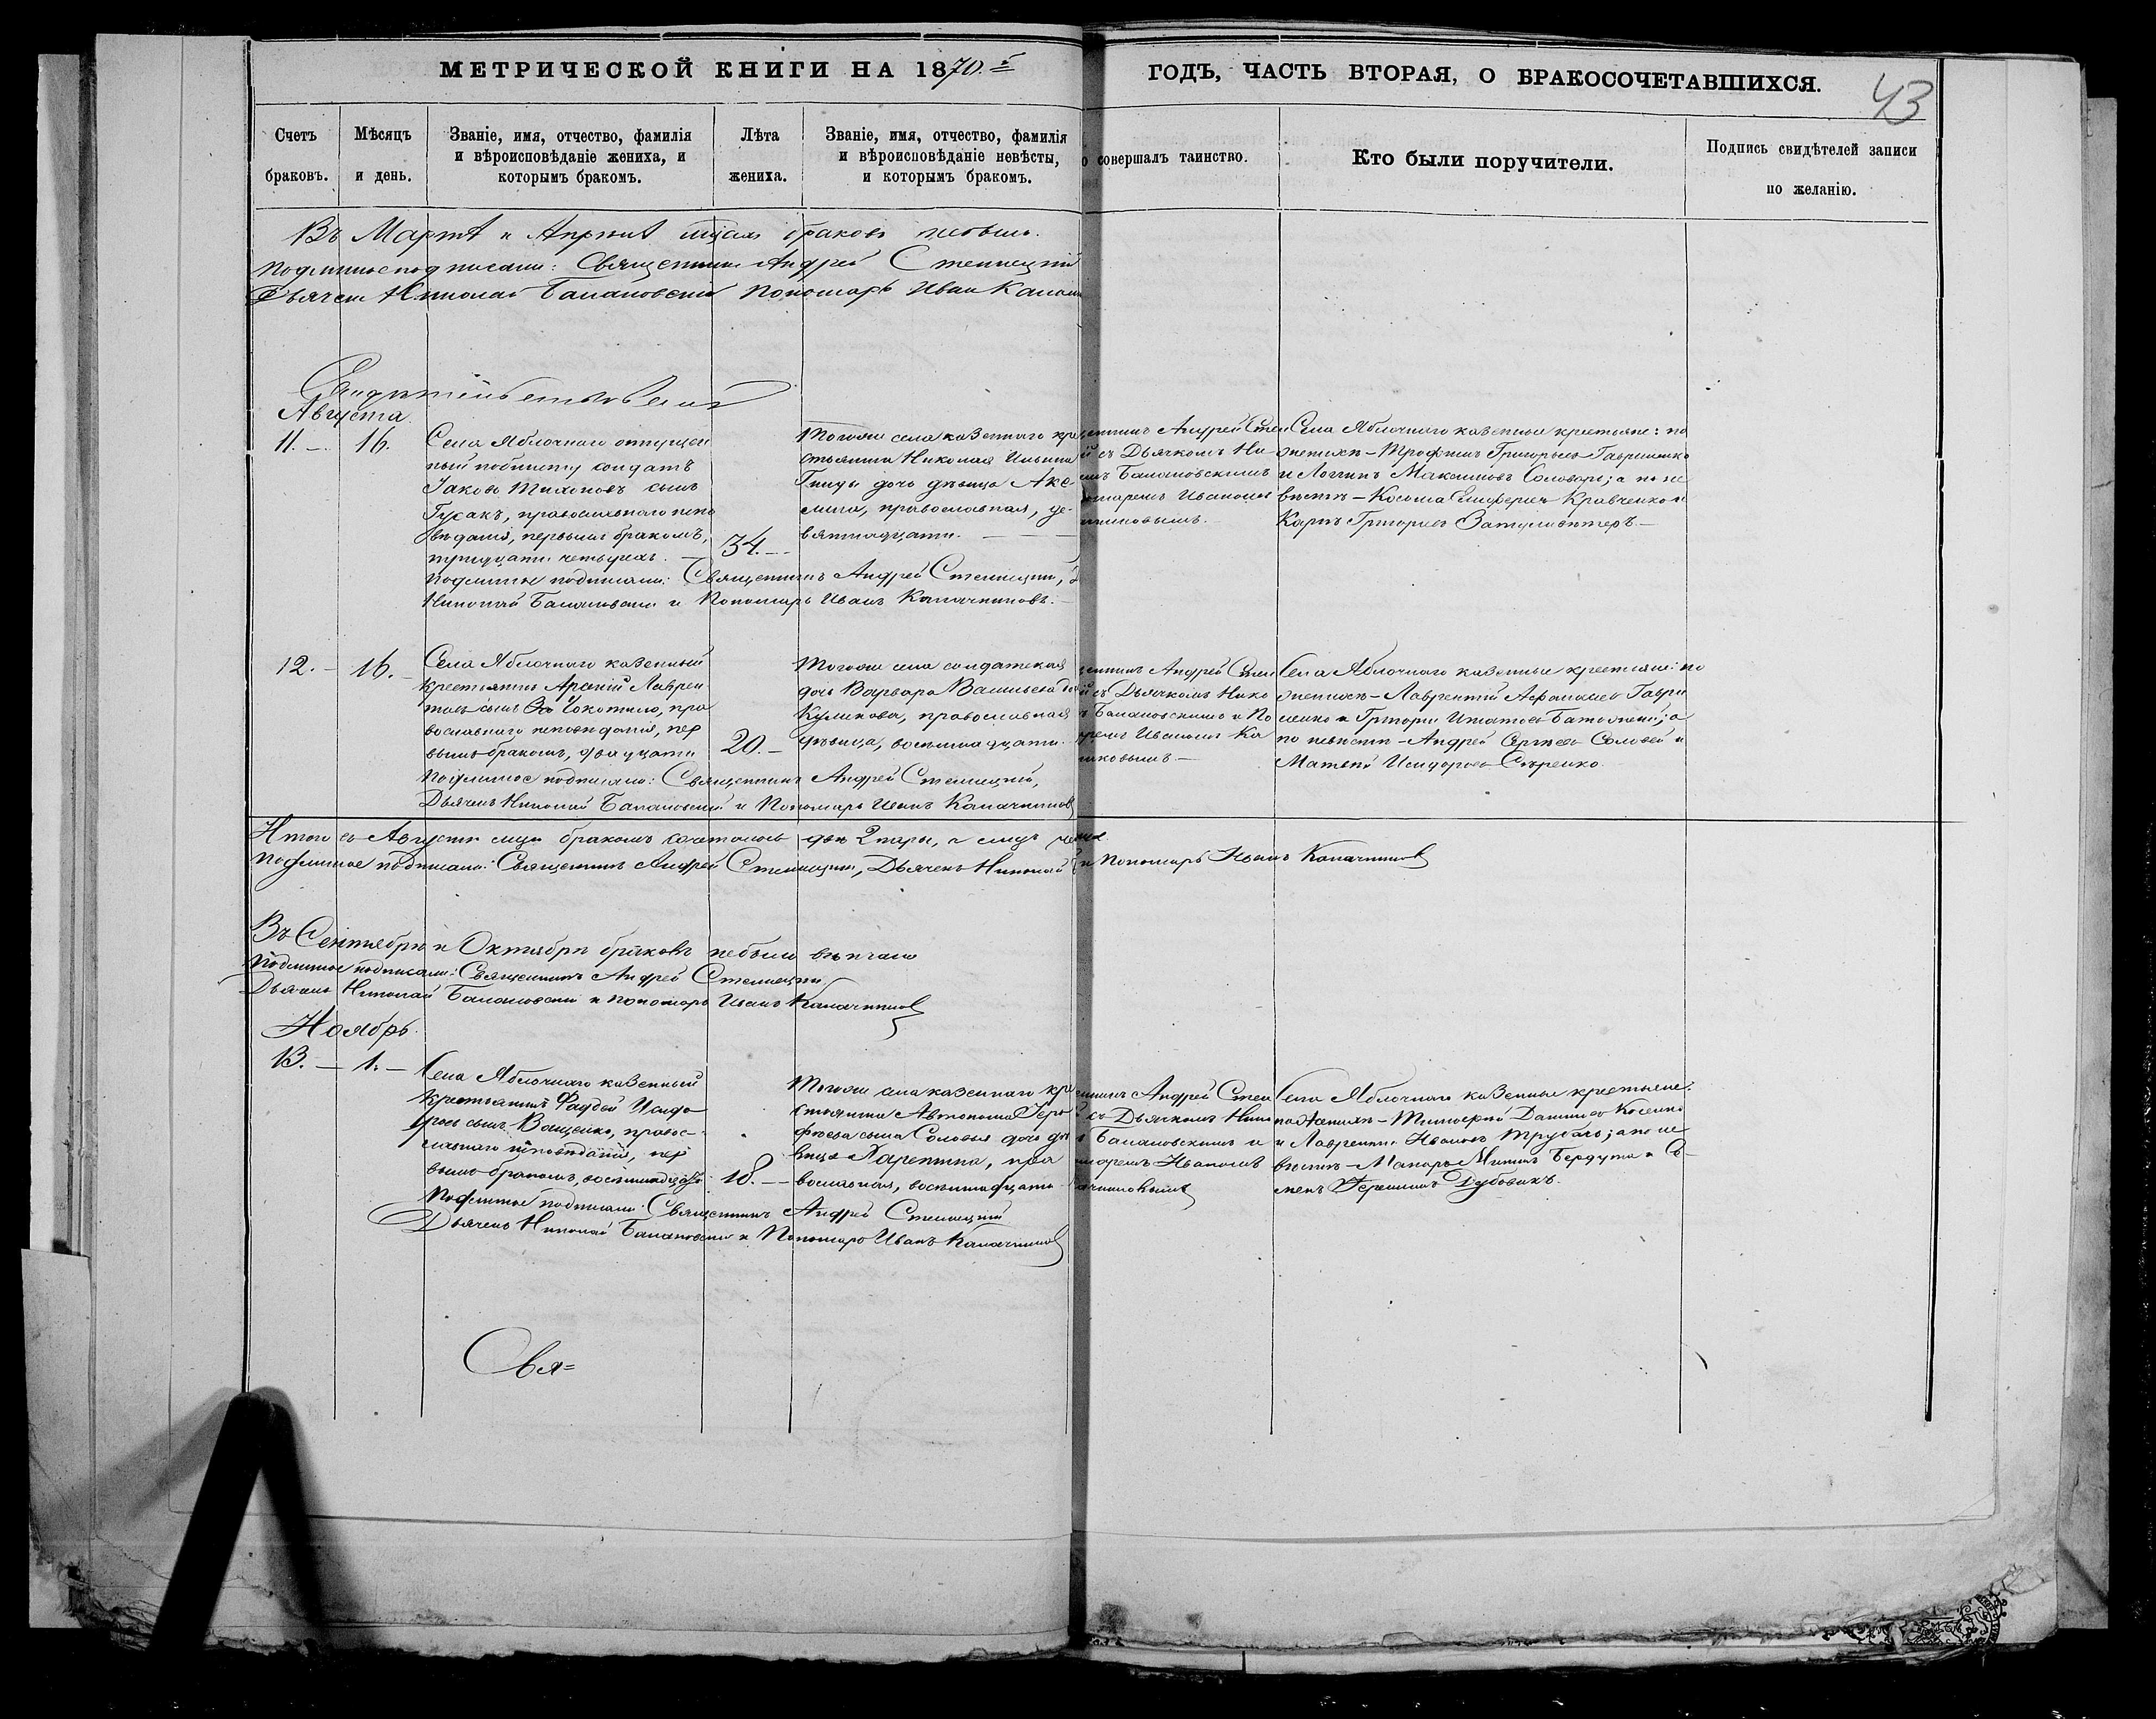 МЕТРИЧЕСКОЙ КНИГИ НА 1870.
ГОДЪ, ЧАСТЬ ВТОРАЯ, О БРАКОСОЧЕТАВШИХСЯ.
43
Счетъ браковъ.
Мѣсяцъ и день.
Званіе, имя, отчество, фамилія
и вѣроисповѣданіе жениха, и
которымъ бракомъ.
Лѣта жениха.
Званіе, имя, отчество, фамилія
и вѣроисповѣданіе невѣсты,
и которымъ бракомъ.
о совершалъ таинство.
Кто были поручители.
Подпись свидѣтелей записи
по желанію.
Въ Мартѣ и Апрѣлѣ браковъ небыло.
Подлинное подписали: Священникъ Андрей
Дьячекъ Николай Балановскій Пономарь Иван
Августа
11. 16.
Села Яблочнаго отпущен
ный побилету солдатъ
Іаковъ Тихоновъ сынъ
Гусакъ, православнаго испо
вѣданія, первымъ бракомъ,
тридцати четырехъ.
34.
Тогоже села казеннаго кре
стьянина Николая
дочь дѣвица Акс-
православная, де-
вятнадцати.
Андрей Стен
й съ Дьячкомъ Ни-
Балановскимъ
Иваномъ
Села Яблочнаго казенные крестьяне: по
женихѣ - Трофимъ Григорьевъ
и Логгинъ Максимовъ Соловарь; а по не
вѣстѣ - Косьма Кравченко и
Карпъ Григорьевъ
Подлинное подписали: Священникъ Андрей
Николай Балановскій и Пономарь Иванъ Калачниковъ.
12. 16.
Села Яблочнаго казенный
крестьянинъ Арсеній Лаврен
тіевъ сынъ, пра
вославнаго исповѣданія, пер
вымъ бракомъ, двадцати
20.
Тогоже села солдатская
дочь Варвара Васильева
Куликова, православная
дѣвица, восьмнадцати.
Андрей Стен
й съ Дьячкомъ Нико
Балановскимъ и По
Иваномъ Ка
Села Яблочнаго казенные крестьяне: по
женихѣ - Лаврентій Гаври
ленко и Григорій; а
по невѣстѣ - Андрей Сергѣевъ Соловей и
Матвѣй Исидоровъ
Подлинное подписали: Священникъ Андрей
Дьячекъ Николай Балановскій и Пономарь Иванъ Калачниковъ
Итого въ Августѣ бракомъ сочеталось двѣ 2 пары, а лицъ
Подлинное подписали: Священникъ Андрей Дьячекъ Николай и Пономарь Иванъ Калачниковъ
Въ Сентябрѣ и Октябрѣ браковъ небыло вѣнчано
Подлинное подписали: Священникъ Андрей
Дьячекъ Николай Балановскій и Пономарь Иванъ Калачниковъ
Ноябрь.
13. 1.
Села Яблочнаго казенный
крестьянинъ Фаддей Исидо
ровъ сынъ Ващенко, правос-
лавнаго исповѣданія, пер
вымъ бракомъ, восьмнадцати
18.
Тогоже села казеннаго кре
стьянина Автонома
сына Соловья дочь дѣ
вица Параскева, пра
вославная, восьмнадцати
Андрей Стен
й съ Дьячкомъ Нико
Балановскимъ и
Иваномъ
Села Яблочнаго казенные крестьяне:
по женихѣ - Тимофей Даниловъ
и Лаврентій Ивановъ Трубачъ; а по не
вѣстѣ - Макаръ Бердута и
Дубовикъ.
Подлинное подписали: Священникъ Андрей
Дьячекъ Николай Балановскій и Пономарь Иванъ Калачниковъ
Свя=